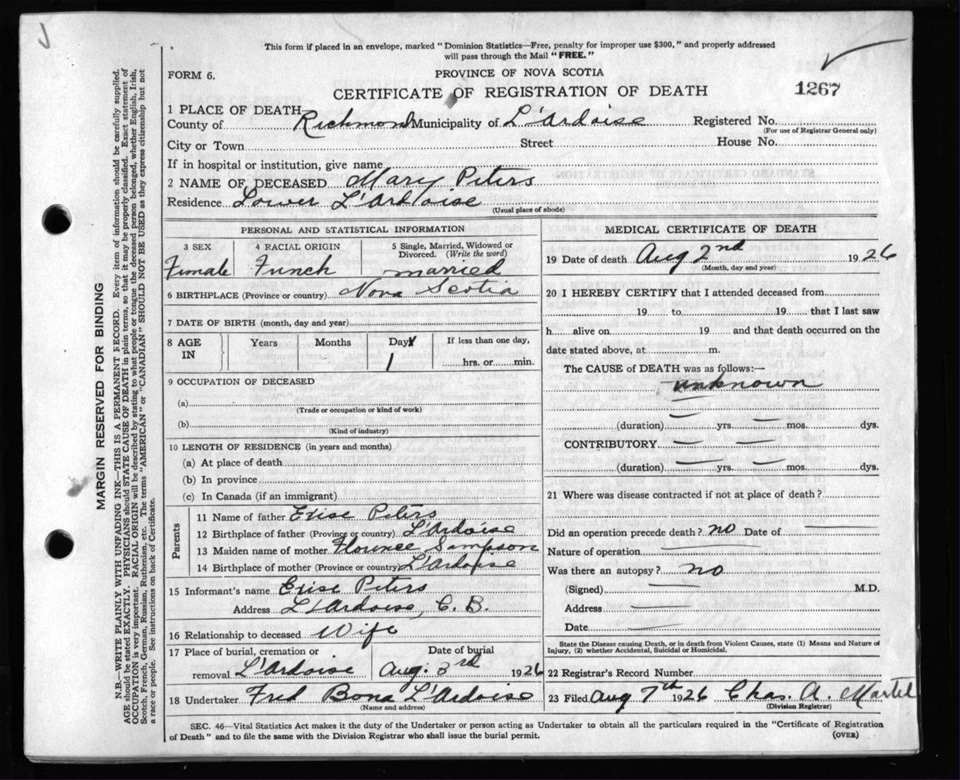 This form if placed in an envelope, marked "Dominion Statistics—Free, penalty for improper use $300," and properly addressed
will pass through the Mail "FREE."
FORM 6.
PROVINCE OF NOVA SCOTIA
CERTIFICATE OF REGISTRATION OF DEATH
1267
1 PLACE OF DEATH
County of Richmond Municipality of L'Ardoise Registered No.
(For use of Registrar General only)
City or Town Street House No.
If in hospital or institution, give name
2 NAME OF DECEASED Mary Peters
Residence Lower L'Ardoise
(Usual place of abode)
PERSONAL AND STATISTICAL INFORMATION
3 SEX 4 RACIAL ORIGIN 5 Single, Married, Widowed or Divorced. (Write the word)
Female French married
6 BIRTHPLACE (Province or country) Nova Scotia
7 DATE OF BIRTH (month, day and year)
8 AGE IN Years Months Days If less than one day,
1 hrs. or min.
9 OCCUPATION OF DECEASED
(a)
(Trade or occupation or kind of work)
(b)
(Kind of industry)
10 LENGTH OF RESIDENCE (in years and months)
(a) At place of death
(b) In province
(c) In Canada (if an immigrant)
Parents
11 Name of father Peters
12 Birthplace of father (Province or country) L'Ardoise
13 Maiden name of mother Florence Sampson
14 Birthplace of mother (Province or country) L'Ardoise
15 Informant's name Peters
Address L'Ardoise, C. B.
16 Relationship to deceased Wife
17 Place of burial, cremation or removal L'Ardoise Date of burial Aug. 3rd 1926
18 Undertaker Fred Bona L'Ardoise
(Name and address)
MEDICAL CERTIFICATE OF DEATH
19 Date of death Aug 2nd 1926
(Month, day and year)
20 I HEREBY CERTIFY that I attended deceased from
19 to 19 that I last saw
h alive on 19 and that death occurred on the
date stated above, at m.
The CAUSE of DEATH was as follows:—
unknown
(duration) — yrs. — mos. dys.
CONTRIBUTORY — —
(duration) — yrs. — mos. dys.
21 Where was disease contracted if not at place of death?
Did an operation precede death? no Date of —
Nature of operation —
Was there an autopsy? no
(Signed) — M.D.
Address —
Date —
State the Disease causing Death, or in death from Violent Causes, state (1) Means and Nature of
Injury, (2) whether Accidental, Suicidal or Homicidal.
22 Registrar's Record Number
23 Filed Aug 7th 1926 Chas. A. Martel
(Division Registrar)
SEC. 46—Vital Statistics Act makes it the duty of the Undertaker or person acting as Undertaker to obtain all the particulars required in the "Certificate of Registration
of Death" and to file the same with the Division Registrar who shall issue the burial permit. (OVER)
MARGIN RESERVED FOR BINDING
N.B.—WRITE PLAINLY WITH UNFADING INK—THIS IS A PERMANENT RECORD. Every item of information should be carefully supplied.
AGE should be stated EXACTLY. PHYSICIANS should STATE CAUSE OF DEATH in plain terms, so that it may be properly classified. Exact statement of
OCCUPATION is very important. RACIAL ORIGIN will be described by stating to what people or tongue the deceased person belonged, whether English, Irish,
Scotch, French, German, Russian, Ruthenian, etc. The terms "AMERICAN" or "CANADIAN" SHOULD NOT BE USED as they express citizenship but not
a race or people. See instructions on back of Certificate.